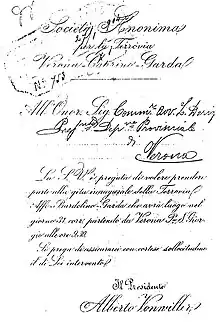 Società Anonima
per la Ferrovia
Verona Caprino Garda
N. 155
All' Onor. Sig. Comm. Avv. L.
Dep. Provinciale
di
Verona
La S. V. è pregata di volere prendere
parte alla gita inaugurale della Ferrovia
Affi-Bardolino-Garda che avrà luogo nel
giorno 31 corr. partendo da Verona P. S. Giorgio
alle ore 9.30.
Si prega di assicurare con cortese sollecitudine
il di Lei intervento.
Il Presidente
Alberto Vonwiller